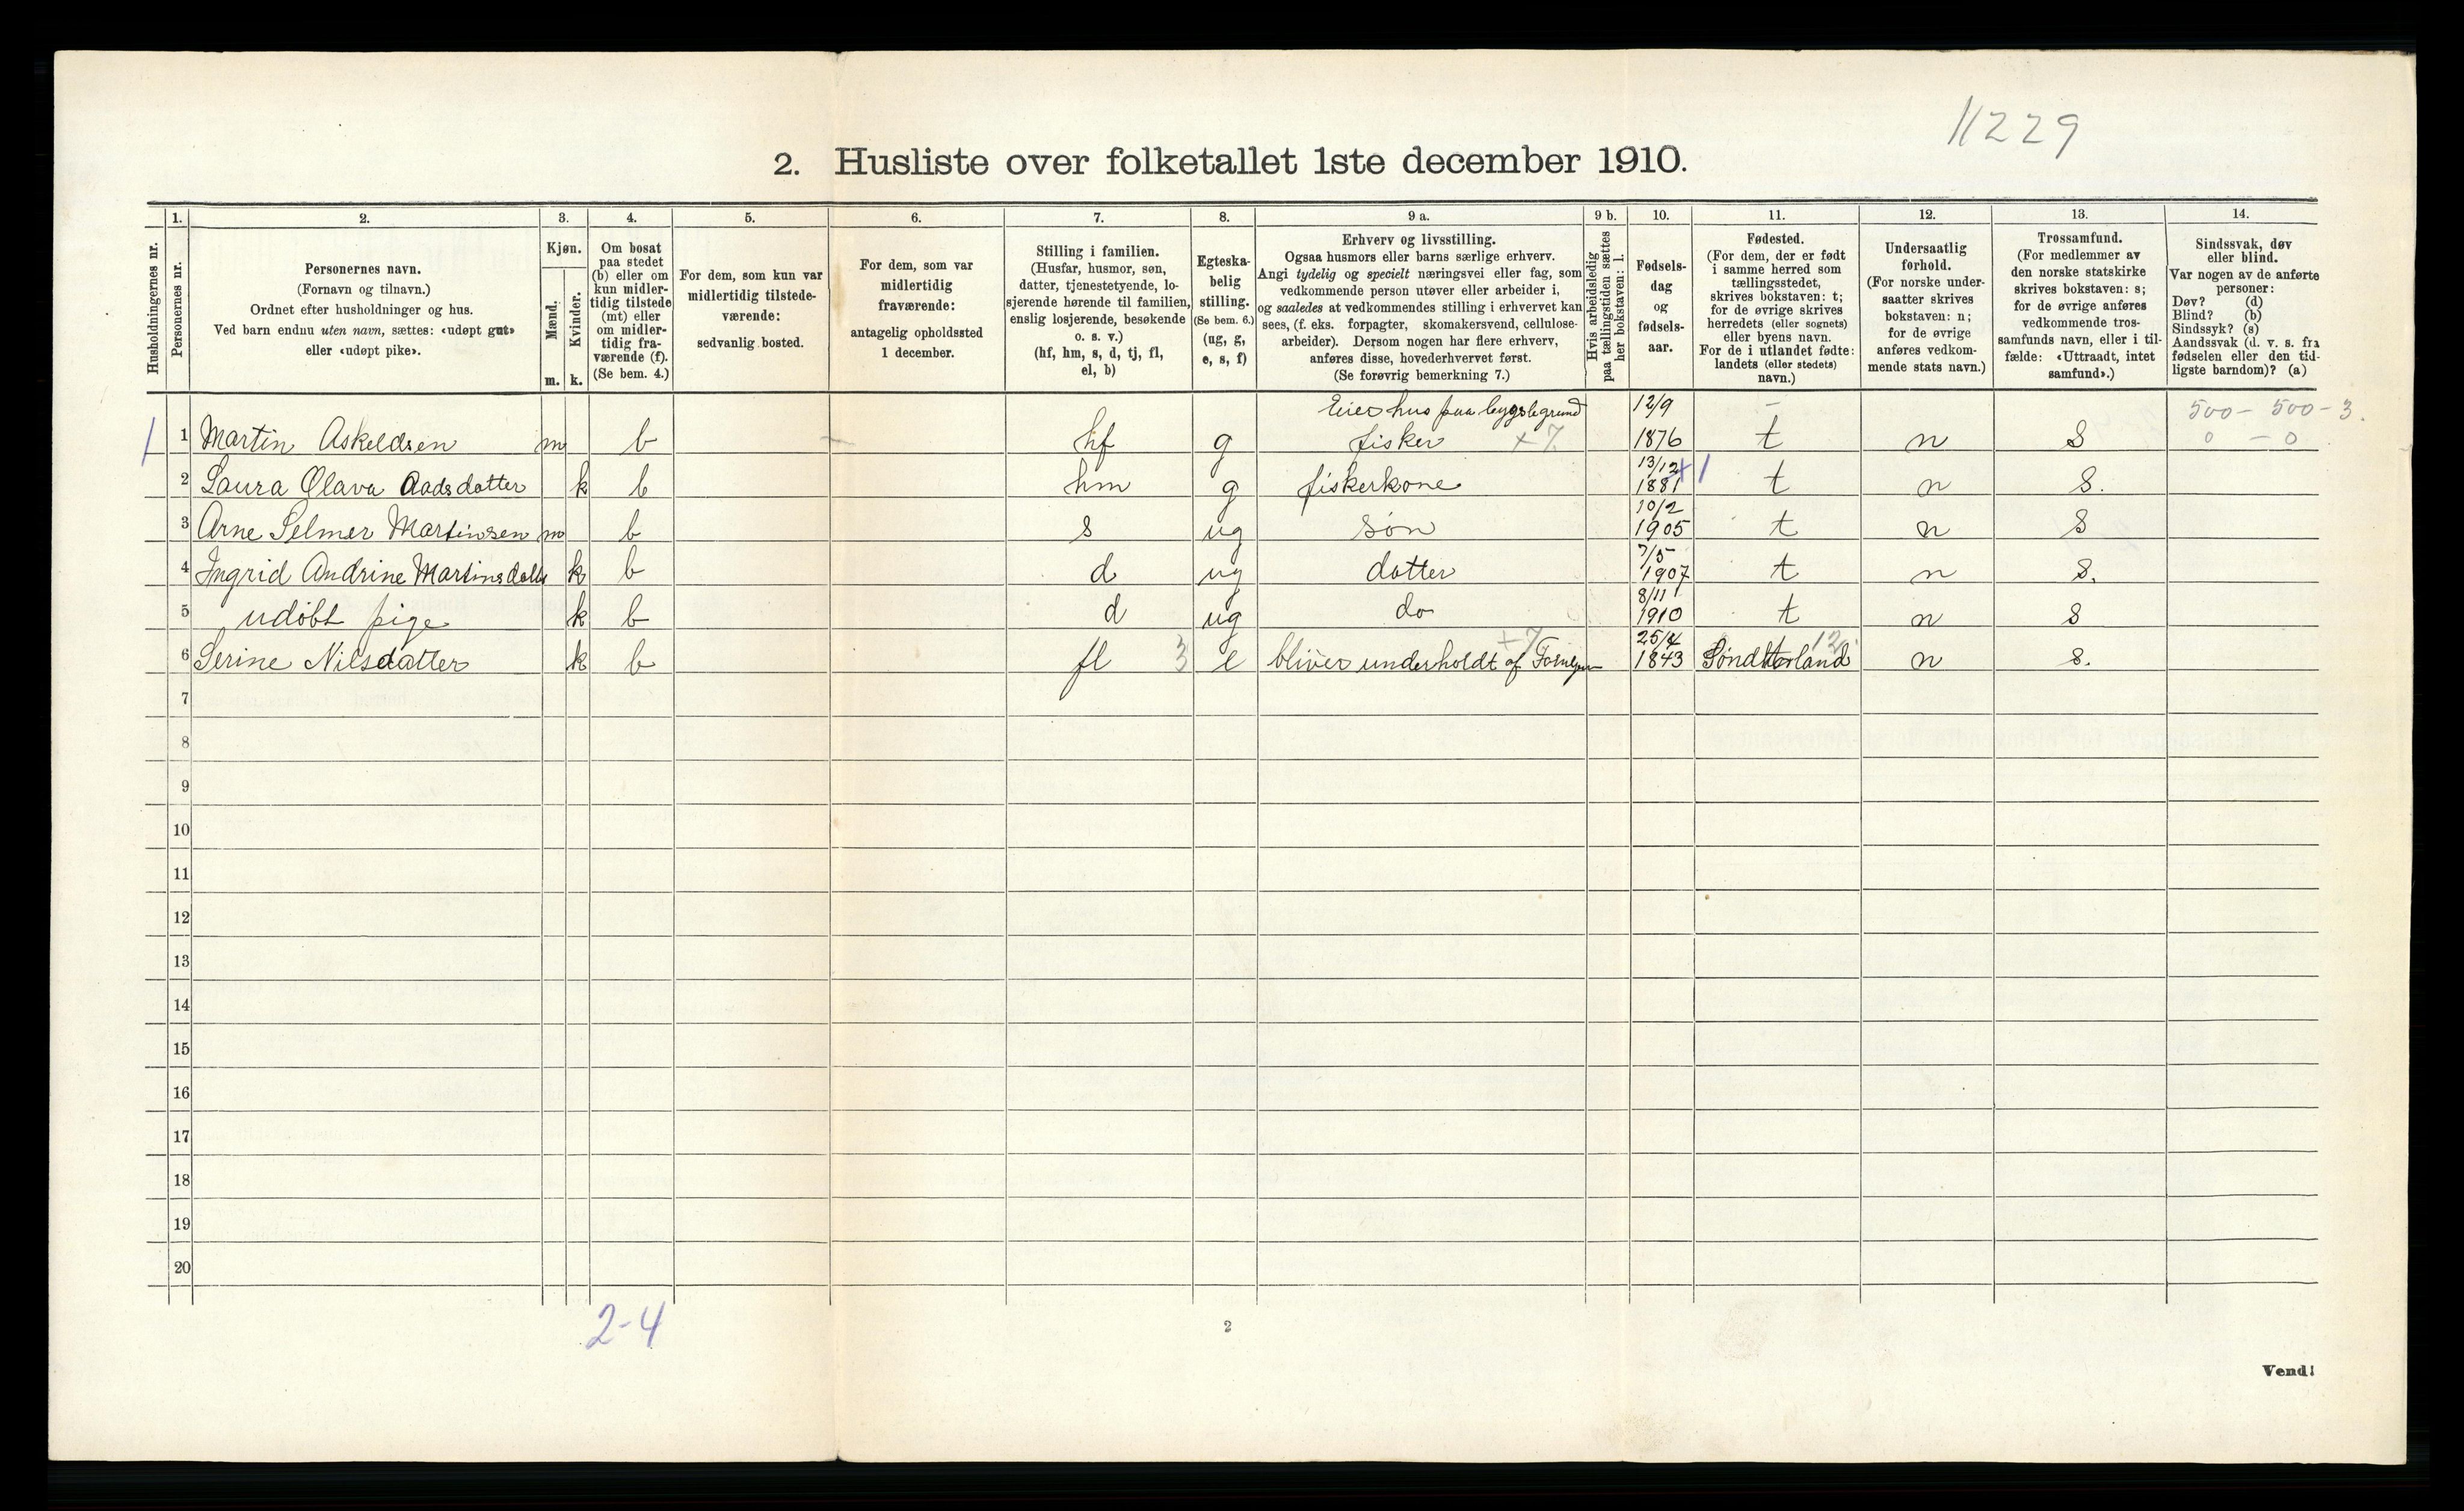 11229
2. Husliste over folketallet 1ste december 1910.
Husholdningernes nr.
1.
Personernes nr.
2.
Personernes navn.
(Fornavn og tilnavn.)
Ordnet efter husholdninger og hus.
Ved barn endnu uten navn, sættes: «udøpt gut»
eller «udøpt pike».
3.
Kjøn.
Mænd.
Kvinder.
m. k.
4.
Om bosat
paa stedet
(b) eller om
kun midler-
tidig tilstede
(mt) eller
om midler-
tidig fra-
værende (f).
(Se bem. 4.)
5.
For dem, som kun var
midlertidig tilstede-
værende:
sedvanlig bosted.
6.
For dem, som var
midlertidig
fraværende:
antagelig opholdssted
1 december.
7.
Stilling i familien.
(Husfar, husmor, søn,
datter, tjenestetyende, lo-
sjerende hørende til familien,
enslig losjerende, besøkende
o. s. v.)
(hf, hm, s, d, tj, fl,
el, b)
8.
Egteska-
belig
stilling.
(Se bem. 6.)
(ug, g,
e, s, f)
9 a.
Erhverv og livsstilling.
Ogsaa husmors eller barns særlige erhverv.
Angi tydelig og specielt næringsvei eller fag, som
vedkommende person utøver eller arbeider i,
og saaledes at vedkommendes stilling i erhvervet kan
sees, (f. eks. forpagter, skomakersvend, cellulose-
arbeider). Dersom nogen har flere erhverv,
anføres disse, hovederhvervet først.
(Se forøvrig bemerkning 7.)
9 b.
Hvis arbeidsledig
paa tællingstiden sættes
her bokstaven: l.
10.
Fødsels-
dag
og
fødsels-
aar.
11.
Fødested.
(For dem, der er født
i samme herred som
tællingsstedet,
skrives bokstaven: t;
for de øvrige skrives
herredets (eller sognets)
eller byens navn.
For de i utlandet fødte:
landets (eller stedets)
navn.)
12.
Undersaatlig
forhold.
(For norske under-
saatter skrives
bokstaven: n;
for de øvrige
anføres vedkom-
mende stats navn.)
13.
Trossamfund.
(For medlemmer av
den norske statskirke
skrives bokstaven: s;
for de øvrige anføres
vedkommende tros-
samfunds navn, eller i til-
fælde: «Uttraadt, intet
samfund».)
14.
Sindssvak, døv
eller blind.
Var nogen av de anførte
personer:
Døv? (d)
Blind? (b)
Sindssyk? (s)
Aandssvak (d. v. s. fra
fødselen eller den tid-
ligste barndom)? (a)
Eier hus paa bygslegrund 12/9 – 500 – 500 – 3.
1 1 Martin Askeldsen m b – hf g fisker +7 1876 t n S 0 – 0
13/12 + 1
2 Laura Olava Aadsdatter k b hm g fiskerkone 1881 t n S.
10/2
3 Arne Selmer Martinsen m b s ug søn 1905 t n S
7/5
4 Ingrid Andrine Martinsdatter k b d ug datter 1907 t n S.
8/11
5 udøbt pige k b d ug do 1910 t n S
+7 25/4 12
6 Serine Nilsdatter k b fl 3 e bliver underholdt af 1843 Søndhorland n S.
7
8
9
10
11
12
13
14
15
16
17
18
19
20
2-4
2
Vend!